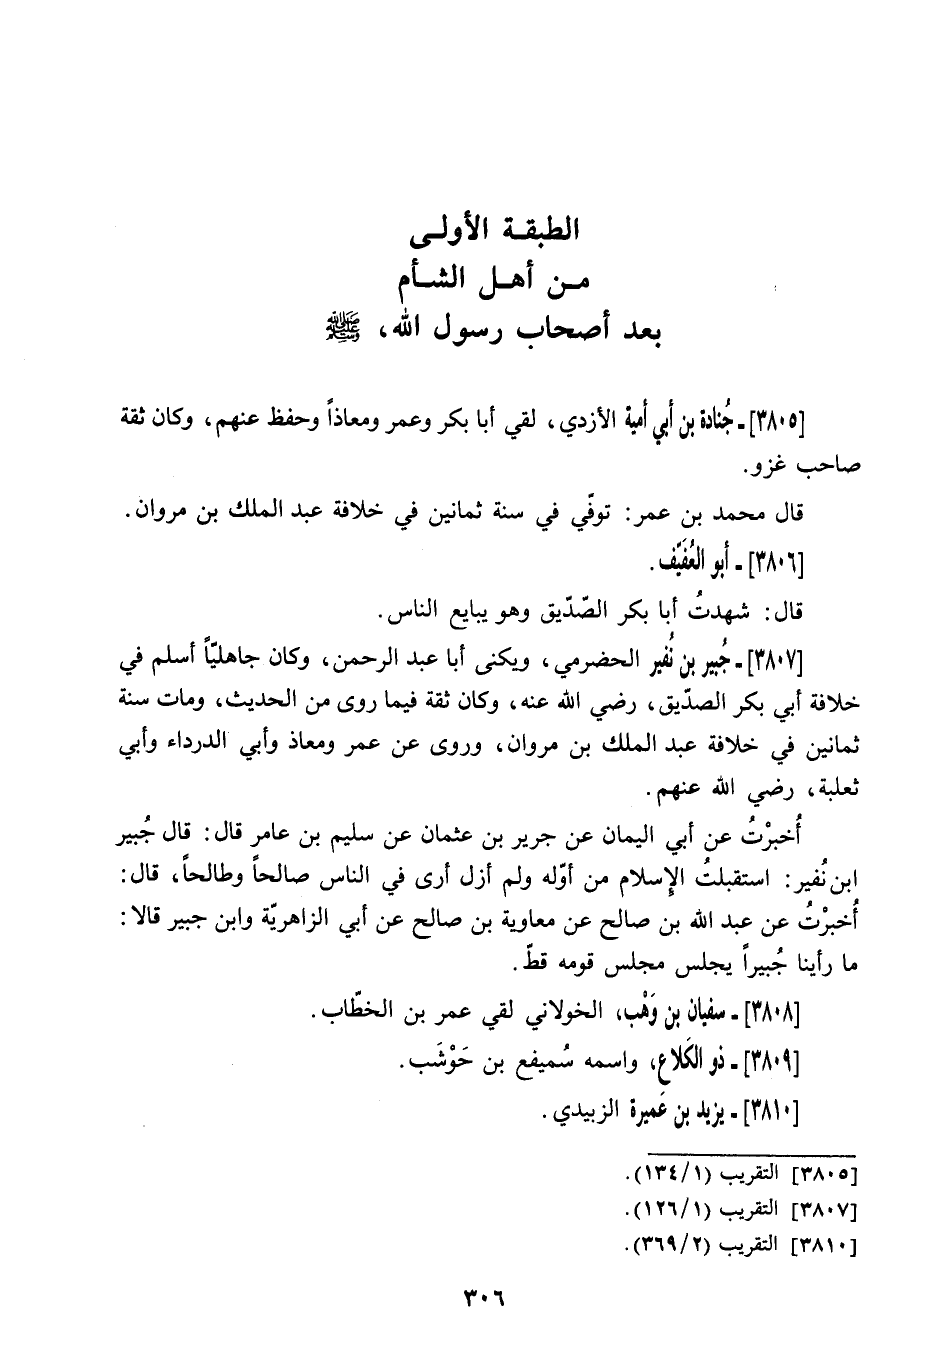 الطبقة الأولى
من أهل الشأم
بعد أصحاب رسول الله، ﷺ
[٣٨٠٥] ـ جُنادة بن أبي أمية الأزدي، لقي أبا بكر وعمر ومعاذاً وحفظ عنهم، وكان ثقة
صاحب غزو.
قال محمد بن عمر: توفّي في سنة ثمانين في خلافة عبد الملك بن مروان.
[٣٨٠٦] ـ أبو العُفَيّف.
قال: شهدتُ أبا بكر الصّدّيق وهو يبايع الناس.
[٣٨٠٧] ـ جُبير بن نُفير الحضرمي، ويكنى أبا عبد الرحمن، وكان جاهليّاً أسلم في
خلافة أبي بكر الصدّيق، رضي الله عنه، وكان ثقة فيما روى من الحديث، ومات سنة
ثمانين في خلافة عبد الملك بن مروان، وروى عن عمر ومعاذ وأبي الدرداء وأبي
ثعلبة، رضي الله عنهم.
أُخبرْتُ عن أبي اليمان عن جرير بن عثمان عن سليم بن عامر قال: قال جُبير
ابن نُفير: استقبلتُ الإسلام من أوّله ولم أزل أرى في الناس صالحاً وطالحاً، قال:
أُخبرْتُ عن عبد الله بن صالح عن معاوية بن صالح عن أبي الزاهريّة وابن جبير قالا:
ما رأينا جُبيراً يجلس مجلس قومه قطّ.
[٣٨٠٨] ـ سفيان بن وَهْب، الخولاني لقي عمر بن الخطّاب.
[٣٨٠٩] ـ ذو الكَلاع، واسمه سُميفع بن حَوْشَب.
[٣٨١٠] ـ يزيد بن عَميرة الزبيدي.
[٣٨٠٥] التقريب (١/ ١٣٤).
[٣٨٠٧] التقريب (١/ ١٢٦).
[٣٨١٠] التقريب (٢/ ٣٦٩).
٣٠٦